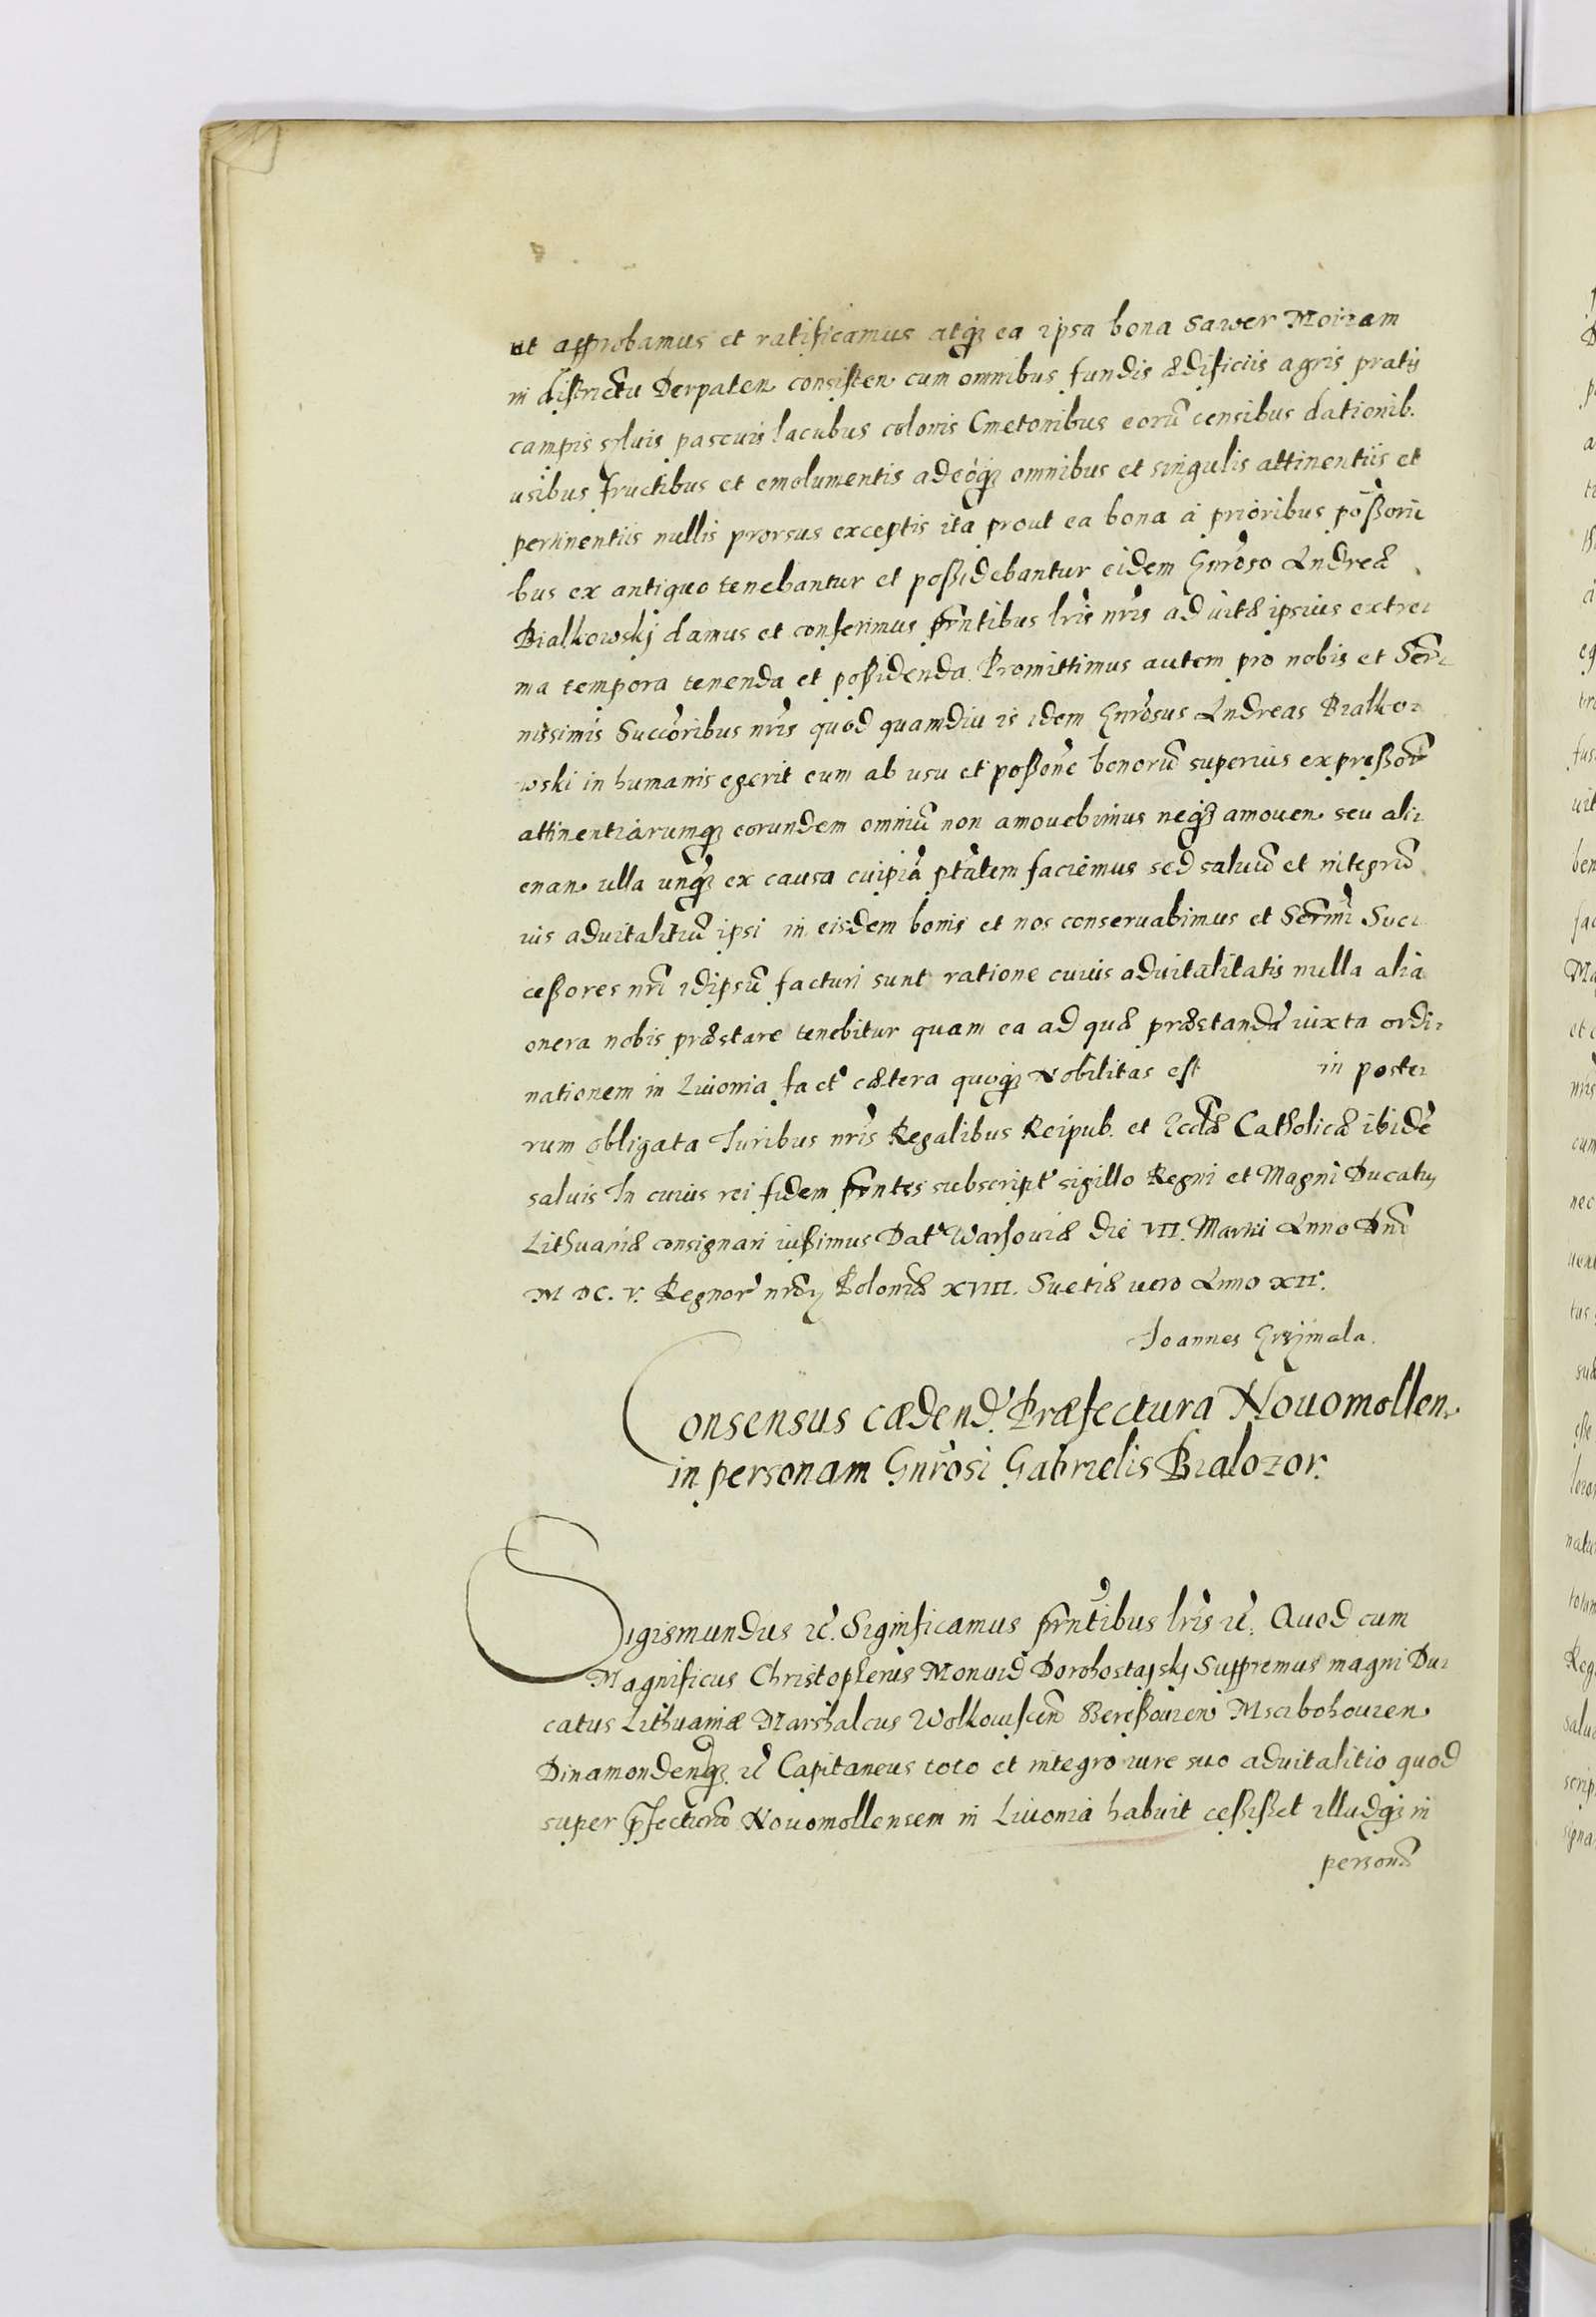 ut approbamus et ratificamus atq3 ea ipsa bona Sawer Moizam
in districtu Derpaten consisten cum omnibus fundis ædificiis agris pratis
campis syluis pascuis lacubus colonis Cmetonibus eorũ censibus dationib.
usibus fructibus et emolumentis adeóq3 omnibus et singulis attinentiis et
pertinentiis nullis prorsus exceptis ita prout ea bona à prioribus poßori
bus ex antiquo tenebantur et poßidebantur eidem Gnroso Andreæ
Bialkowskj damus et conferimus pñntibus lris nris ad vitæ ipsius extre
ma tempora tenenda et poßidenda. Promittimus autem pro nobis et Sere
nissimis Succoribus nris quod quamdiu is idem Gnrosus Andreas Bialko
wski in humanis egerit eum ab usu et poßone bonorũ superius expreßorũ
attinentiarumq3 eorundem omniũ non amouebimus neq3 amouen seu ali
enan ulla unq3 ex causa cuipiã ptatem faciemus sed saluũ et integrũ
ius aduitalitiũ ipsi in eisdem bonis et nos conseruabimus et Sermi Suc
ceßores nri idipsũ facturi sunt ratione cuius aduitalitatis nulla alia
onera nobis præstare tenebitur quam ea ad quæ præstanda iuxta ordi
nationem in Liuonia fact cætera quoq3 Nobilitas est in poste
rum obligata Iuribus nris Regalibus Reipub. et Eccliæ Catholicæ ibidẽ
saluis In cuius rei fidem pñntes subscript sigillo Regni et Magni Ducatus
Lithuaniæ consignari iußimus Dat Warsouiæ die VII. Martii Anno Dñi
M DC. V. Regnor nror Poloniæ XVIII. Suetiæ uero Anno XII.
Joannes Grzymala.
Consensus cædend. Præfectura Nouomollen
in personam Gnrosi Gabrielis Bialozor.
Sigismundus etc. Significamus pñntibus lris etc. Quod cum
Magnificus Christopherus Monuid Dorohostajskj Suppremus magni Du
catus Lithuaniæ Marshalcus Wolkowiscen Bereßouien Mscibohouien
Dinamondenq3 etc Capitaneus toto et integro iure suo aduitalitio quod
super pfecturã Nouomollensem in Liuonia habuit ceßißet illudq3 in
personã